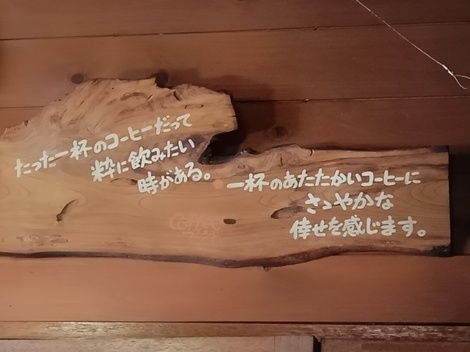 たった一杯のコーヒーだって
粋に飲みたい
時がある。
一杯のあたたかいコーヒーに
さゝやかな
倖せを感じます。